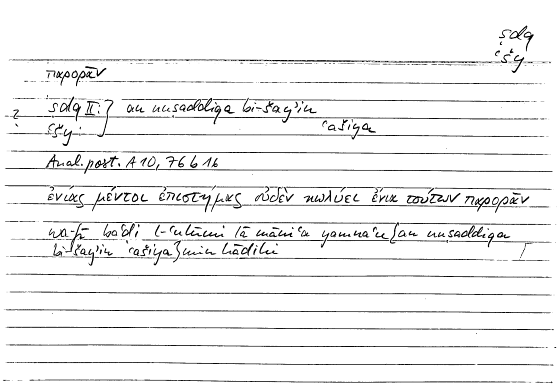 ṣdq
ʿšy
παρορᾶν
? ṣdq II: } an nuṣaddiqa bi-šayʾin
ʿšy: ʿašiya
Anal. post. A 10, 76 b 16
ἐνίας μέντοι ἐπιστήμας οὐδὲν κωλύει ἔνια τούτων παρορᾶν
wa-fī baʿḍi l-ʿulūmi lā māniʿa yamnaʿu {an nuṣaddiqa
bi-šayʾin ʿašiya} min hāḏihī